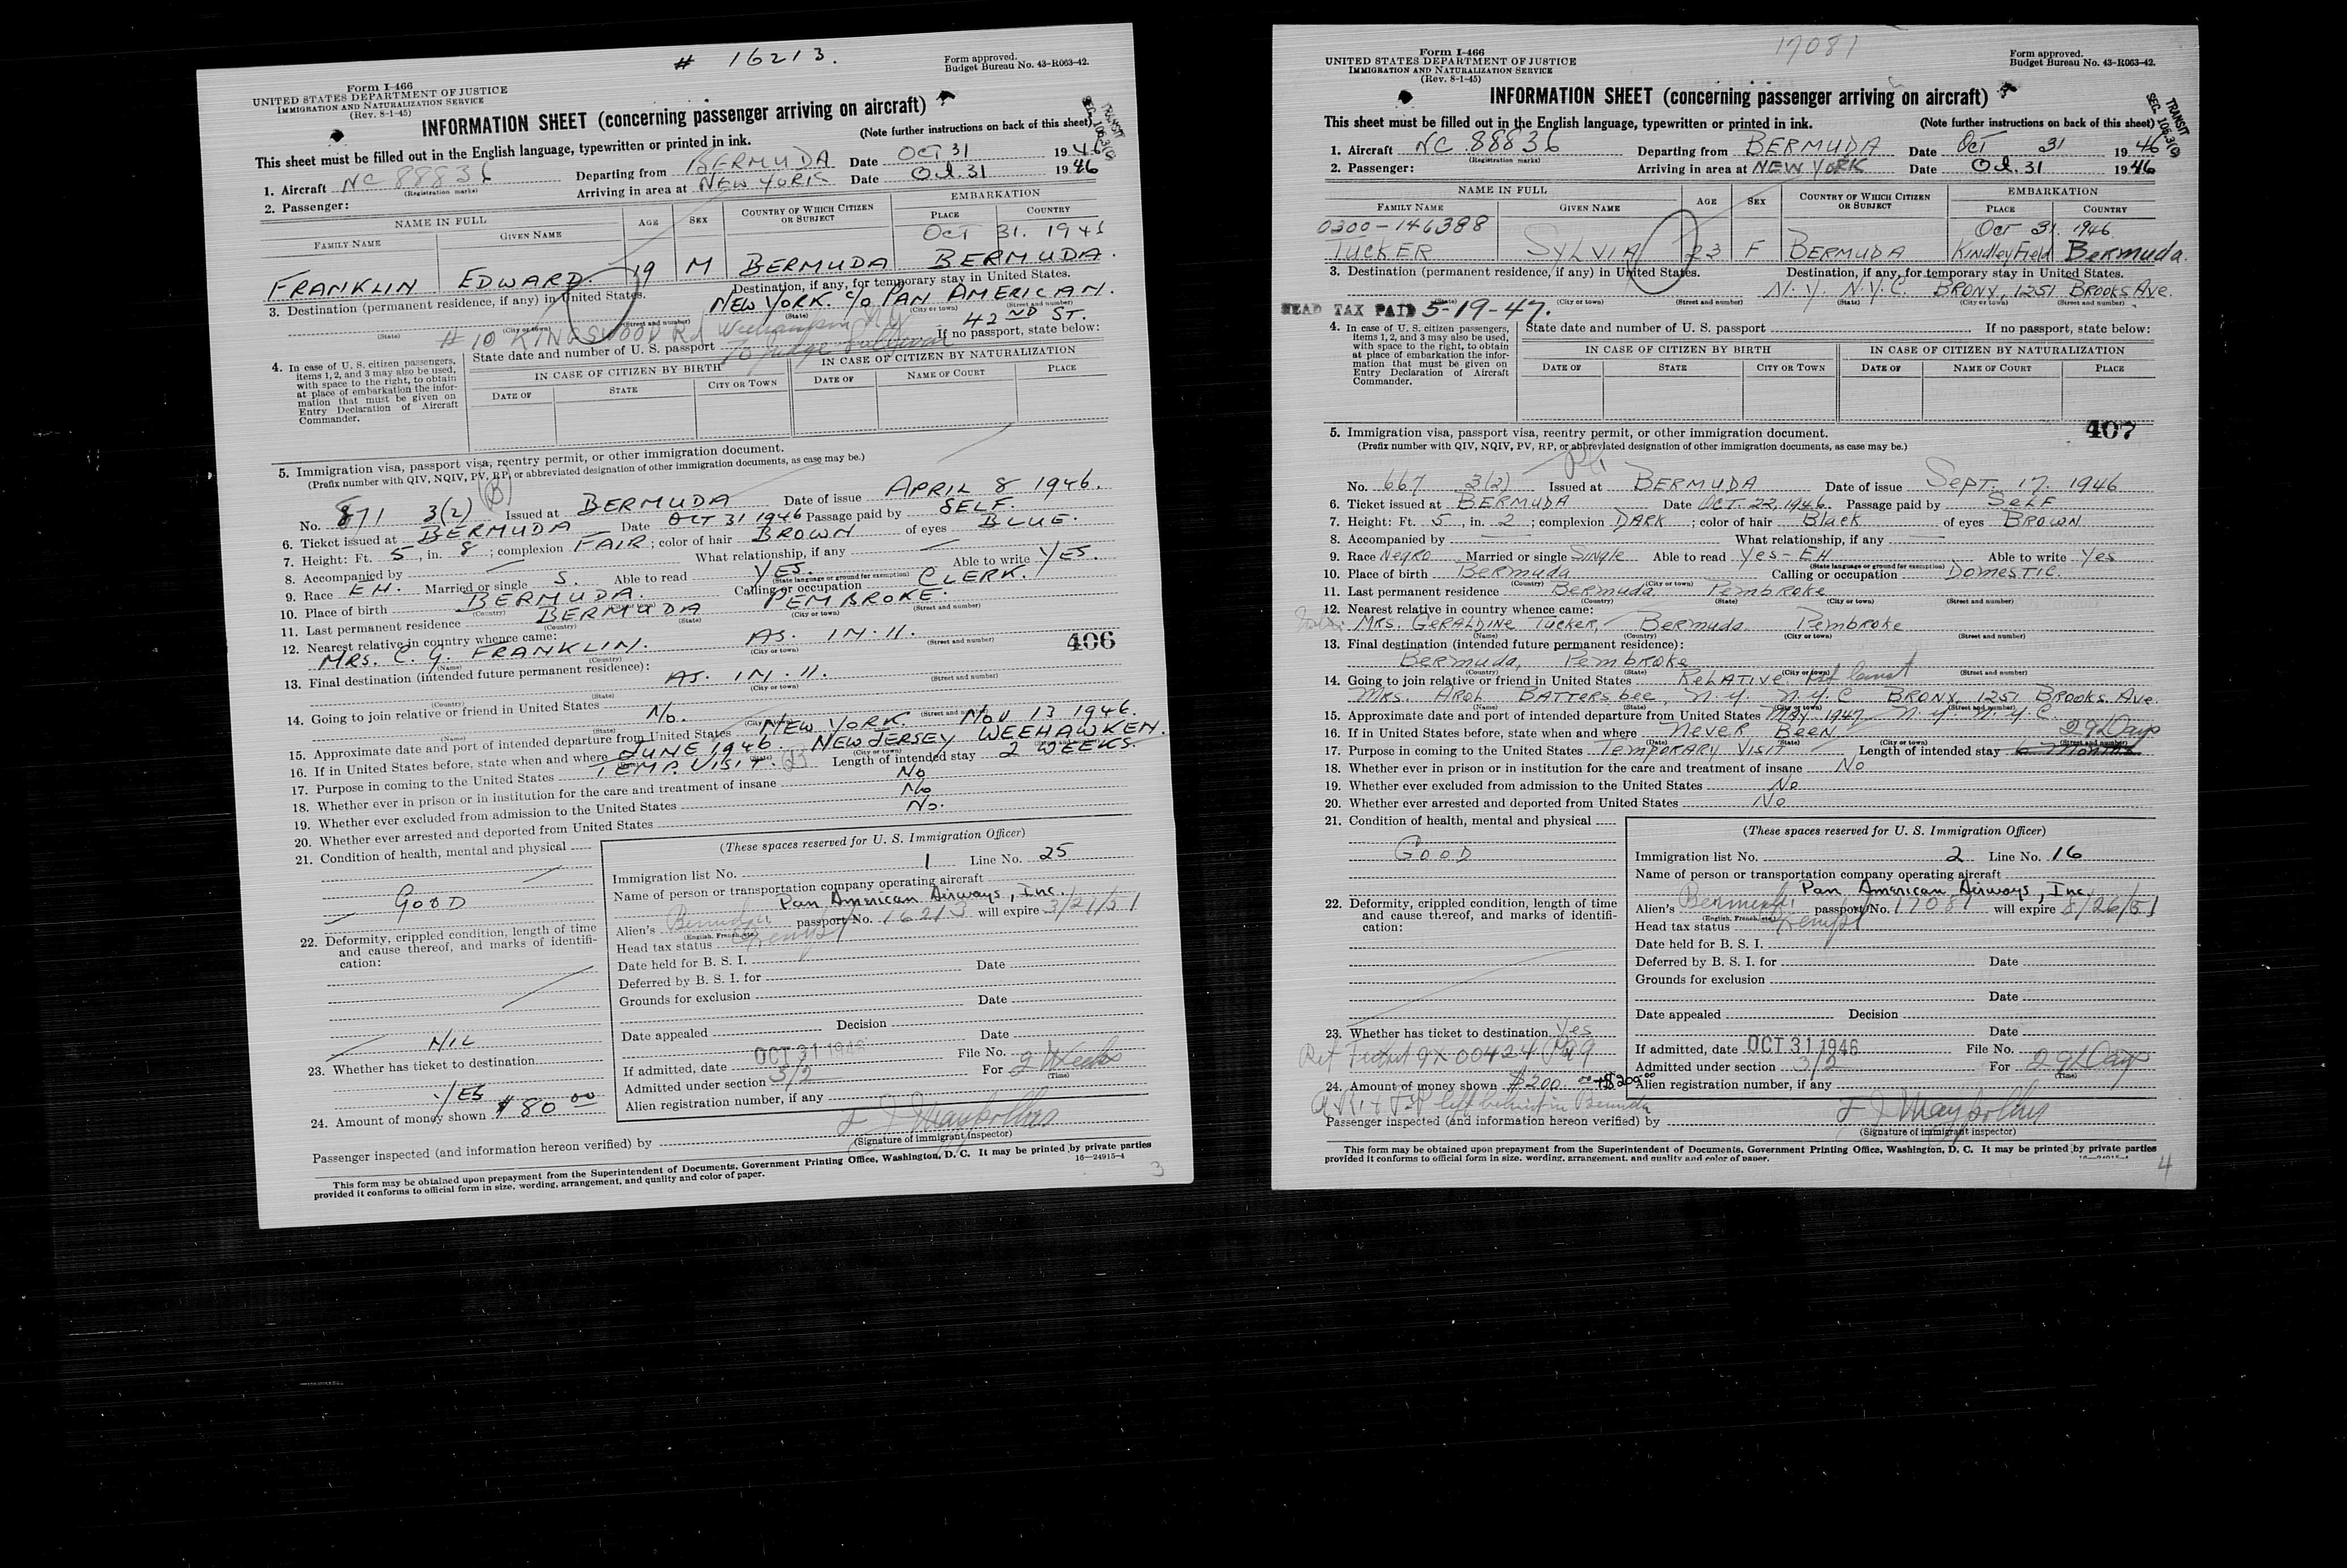 # 16213.
Form I-466
UNITED STATES DEPARTMENT OF JUSTICE
IMMIGRATION AND NATURALIZATION SERVICE
(Rev. 8-1-45)
Form approved.
Budget Bureau No. 43-R063-42.
INFORMATION SHEET (concerning passenger arriving on aircraft)
This sheet must be filled out in the English language, typewritten or printed in ink.
(Note further instructions on back of this sheet)
1. Aircraft NC 88836 Departing from BERMUDA Date OCT 31 1946
(Registration marks)
2. Passenger: Arriving in area at NEW YORK Date Oct. 31 1946
NAME IN FULL AGE SEX COUNTRY OF WHICH CITIZEN OR SUBJECT EMBARKATION
FAMILY NAME GIVEN NAME PLACE COUNTRY
OCT 31. 194
FRANKLIN EDWARD. 19 M BERMUDA BERMUDA.
3. Destination (permanent residence, if any) in United States. Destination, if any, for temporary stay in United States.
NEW YORK. c/o PAN AMERICAN.
(State) (City or town) (Street and number) (State) (City or town) (Street and number)
42ND ST.
# 10 KINGSWOOD Rd
4. In case of U. S. citizen passengers, items 1, 2, and 3 may also be used, with space to the right, to obtain at place of embarkation the information that must be given on Entry Declaration of Aircraft Commander.
State date and number of U. S. passport If no passport, state below:
IN CASE OF CITIZEN BY BIRTH IN CASE OF CITIZEN BY NATURALIZATION
DATE OF STATE CITY OR TOWN DATE OF NAME OF COURT PLACE
5. Immigration visa, passport visa, reentry permit, or other immigration document.
(Prefix number with QIV, NQIV, PV, RP, or abbreviated designation of other immigration documents, as case may be.)
No. 871 3(2) Issued at BERMUDA Date of issue APRIL 8 1946.
6. Ticket issued at BERMUDA Date OCT 31 1946 Passage paid by SELF.
7. Height: Ft. 5, in. 8; complexion FAIR; color of hair BROWN of eyes BLUE.
8. Accompanied by What relationship, if any
9. Race EH. Married or single S. Able to read YES. Able to write YES.
(State language or ground for exemption)
10. Place of birth BERMUDA. Calling or occupation CLERK.
11. Last permanent residence BERMUDA PEMBROKE.
(Country) (State) (City or town) (Street and number)
12. Nearest relative in country whence came:
MRS. C. G. FRANKLIN. AS. IN. 11.
(Name) (Country) (City or town) (Street and number)
406
13. Final destination (intended future permanent residence):
AS. IN. 11.
(Country) (State) (City or town) (Street and number)
14. Going to join relative or friend in United States No.
(Name) (State) (City or town) (Street and number)
15. Approximate date and port of intended departure from United States NEW YORK. NOV 13 1946.
16. If in United States before, state when and where JUNE 1946. NEW JERSEY WEEHAWKEN.
17. Purpose in coming to the United States TEMP. VISIT. Length of intended stay 2 WEEKS.
18. Whether ever in prison or in institution for the care and treatment of insane No
19. Whether ever excluded from admission to the United States No
20. Whether ever arrested and deported from United States No.
21. Condition of health, mental and physical
GOOD
22. Deformity, crippled condition, length of time and cause thereof, and marks of identification:
NIL
23. Whether has ticket to destination
YES
24. Amount of money shown $80 00
(These spaces reserved for U. S. Immigration Officer)
Immigration list No. 1 Line No. 25
Name of person or transportation company operating aircraft
Pan American Airways, Inc.
Alien's passport No. 16213 will expire 3/21/51
(English, French, etc.)
Head tax status Exempt
Date held for B. S. I.
Deferred by B. S. I. for Date
Grounds for exclusion
Date
Date appealed Decision
Date
If admitted, date OCT 31 1946 File No.
Admitted under section 3/2 For 2 Weeks
(Time)
Alien registration number, if any
Passenger inspected (and information hereon verified) by
(Signature of immigrant inspector)
This form may be obtained upon prepayment from the Superintendent of Documents, Government Printing Office, Washington, D. C. It may be printed by private parties
provided it conforms to official form in size, wording, arrangement, and quality and color of paper.
16—24915-4
3
17081
Form I-466
UNITED STATES DEPARTMENT OF JUSTICE
IMMIGRATION AND NATURALIZATION SERVICE
(Rev. 8-1-45)
Form approved.
Budget Bureau No. 43-R063-42.
INFORMATION SHEET (concerning passenger arriving on aircraft)
TRANSIT
SEC. 106.3(9)
This sheet must be filled out in the English language, typewritten or printed in ink.
(Note further instructions on back of this sheet)
1. Aircraft NC 88836 Departing from BERMUDA Date Oct 31 1946
(Registration marks)
2. Passenger: Arriving in area at NEW YORK Date Oct. 31 1946
NAME IN FULL AGE SEX COUNTRY OF WHICH CITIZEN OR SUBJECT EMBARKATION
FAMILY NAME GIVEN NAME PLACE COUNTRY
0300-146388 Oct 31. 1946
TUCKER SYLVIA 23 F BERMUDA Kindley Field Bermuda.
3. Destination (permanent residence, if any) in United States. Destination, if any, for temporary stay in United States.
N.Y. N.Y.C. BRONX, 1251 BROOKS AVE.
(State) (City or town) (Street and number) (State) (City or town) (Street and number)
HEAD TAX PAID 5-19-47.
4. In case of U. S. citizen passengers, items 1, 2, and 3 may also be used, with space to the right, to obtain at place of embarkation the information that must be given on Entry Declaration of Aircraft Commander.
State date and number of U. S. passport If no passport, state below:
IN CASE OF CITIZEN BY BIRTH IN CASE OF CITIZEN BY NATURALIZATION
DATE OF STATE CITY OR TOWN DATE OF NAME OF COURT PLACE
407
5. Immigration visa, passport visa, reentry permit, or other immigration document.
(Prefix number with QIV, NQIV, PV, RP, or abbreviated designation of other immigration documents, as case may be.)
No. 667 3(2) Issued at BERMUDA Date of issue SEPT. 17. 1946
6. Ticket issued at BERMUDA Date OCT. 22, 1946. Passage paid by SELF
7. Height: Ft. 5, in. 2; complexion DARK; color of hair Black of eyes BROWN
8. Accompanied by What relationship, if any
9. Race Negro Married or single Single Able to read Yes-EH Able to write Yes
(State language or ground for exemption)
10. Place of birth Bermuda Calling or occupation DOMESTIC.
(Country) (City or town)
11. Last permanent residence Bermuda, Pembroke
(Country) (State) (City or town) (Street and number)
12. Nearest relative in country whence came:
MRS. GERALDINE TUCKER, Bermuda. Pembroke
(Name) (Country) (City or town) (Street and number)
13. Final destination (intended future permanent residence):
Bermuda, Pembroke
(Country) (State) (City or town) (Street and number)
14. Going to join relative or friend in United States RELATIVE
MRS. BATTERSbee, N.Y. N.Y.C BRONX, 1251 BROOKS. AVE.
(Name) (State) (City or town) (Street and number)
15. Approximate date and port of intended departure from United States MAY 1947 N.Y. N.Y.C.
16. If in United States before, state when and where Never Been
(Date) (State) (City or town) (Street and number)
17. Purpose in coming to the United States Temporary Visit Length of intended stay 29 Days
18. Whether ever in prison or in institution for the care and treatment of insane No
19. Whether ever excluded from admission to the United States No
20. Whether ever arrested and deported from United States No
21. Condition of health, mental and physical
GOOD
22. Deformity, crippled condition, length of time and cause thereof, and marks of identification:
23. Whether has ticket to destination Yes
24. Amount of money shown $200.00 + $200.00
left behind in Bermuda
(These spaces reserved for U. S. Immigration Officer)
Immigration list No. 2 Line No. 16
Name of person or transportation company operating aircraft
Pan American Airways, Inc.
Alien's passport No. 17081 will expire 8/26/51
(English, French, etc.)
Head tax status Exempt
Date held for B. S. I.
Deferred by B. S. I. for Date
Grounds for exclusion
Date
Date appealed Decision
Date
If admitted, date OCT 31 1946 File No.
Admitted under section 3/2 For 29 Days
(Time)
Alien registration number, if any
Passenger inspected (and information hereon verified) by
(Signature of immigrant inspector)
This form may be obtained upon prepayment from the Superintendent of Documents, Government Printing Office, Washington, D. C. It may be printed by private parties
provided it conforms to official form in size, wording, arrangement, and quality and color of paper.
4